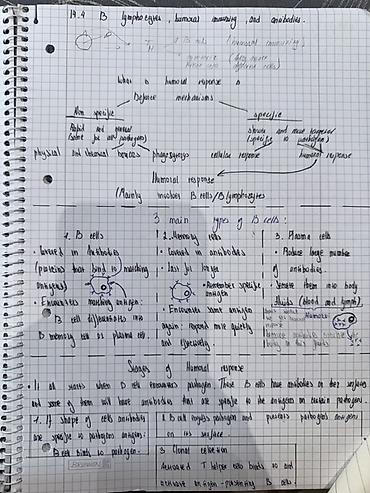 19.4 B lymphocytes, humoral immunity and antibodies.
B cells (humoral immunity)
What is humoral response is
Defence mechanisms
Non specific
specific
Rapid and general
Same for all pathogens
slower and more targeted
(specific to pathogen)
physical and chemical barriers phagocytosis cellular response humoral response
Humoral response
(Mainly involves B cells/B lymphocytes)
3 main types of B cells:
1. B cells
• Covered in Antibodies
(proteins that bind to matching
antigens)
• Encounters matching antigen:
B cell differentiates into
B memory cell or plasma cell.
2. Memory cells
• Covered in antibodies
• Last for longer
• Remember specific
antigen
• Encounter same antigen
again: respond more quickly
and effectively.
3. Plasma cells
• Produce large number
of antibodies.
• Secrete them into body
fluids (blood and lymph).
Stages of Humoral response
• It all starts when B cell encounters pathogen. These B cells have antibodies on their surfaces
and some of them will have antibodies that are specific to the antigens on certain pathogen.
1. If shape of cells antibodies
are specific to pathogens antigen:
B cell binds to pathogen.
2 B cell engulfs pathogen and presents pathogens antigens
on its surface.
3 Clonal selection
Activated T helper cells binds to and
activate antigen-presenting B cells.